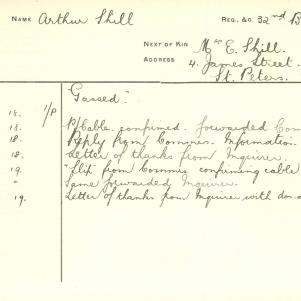 NAME Arthur Shill REG. &C. 32nd B
NEXT OF KIN Mrs E. Shill.
ADDRESS 4. James Street.
St. Peters.
"Gassed".
18. 1/P
18. P/Cable. confirmed. forwarded Com
18. Reply from Commrs. Information
18. Letter of thanks from Inquirer.
19. "Slix" from Commrs confirming cable
" Same forwarded Inquirer.
19. Letter of thanks from Inquirer with don